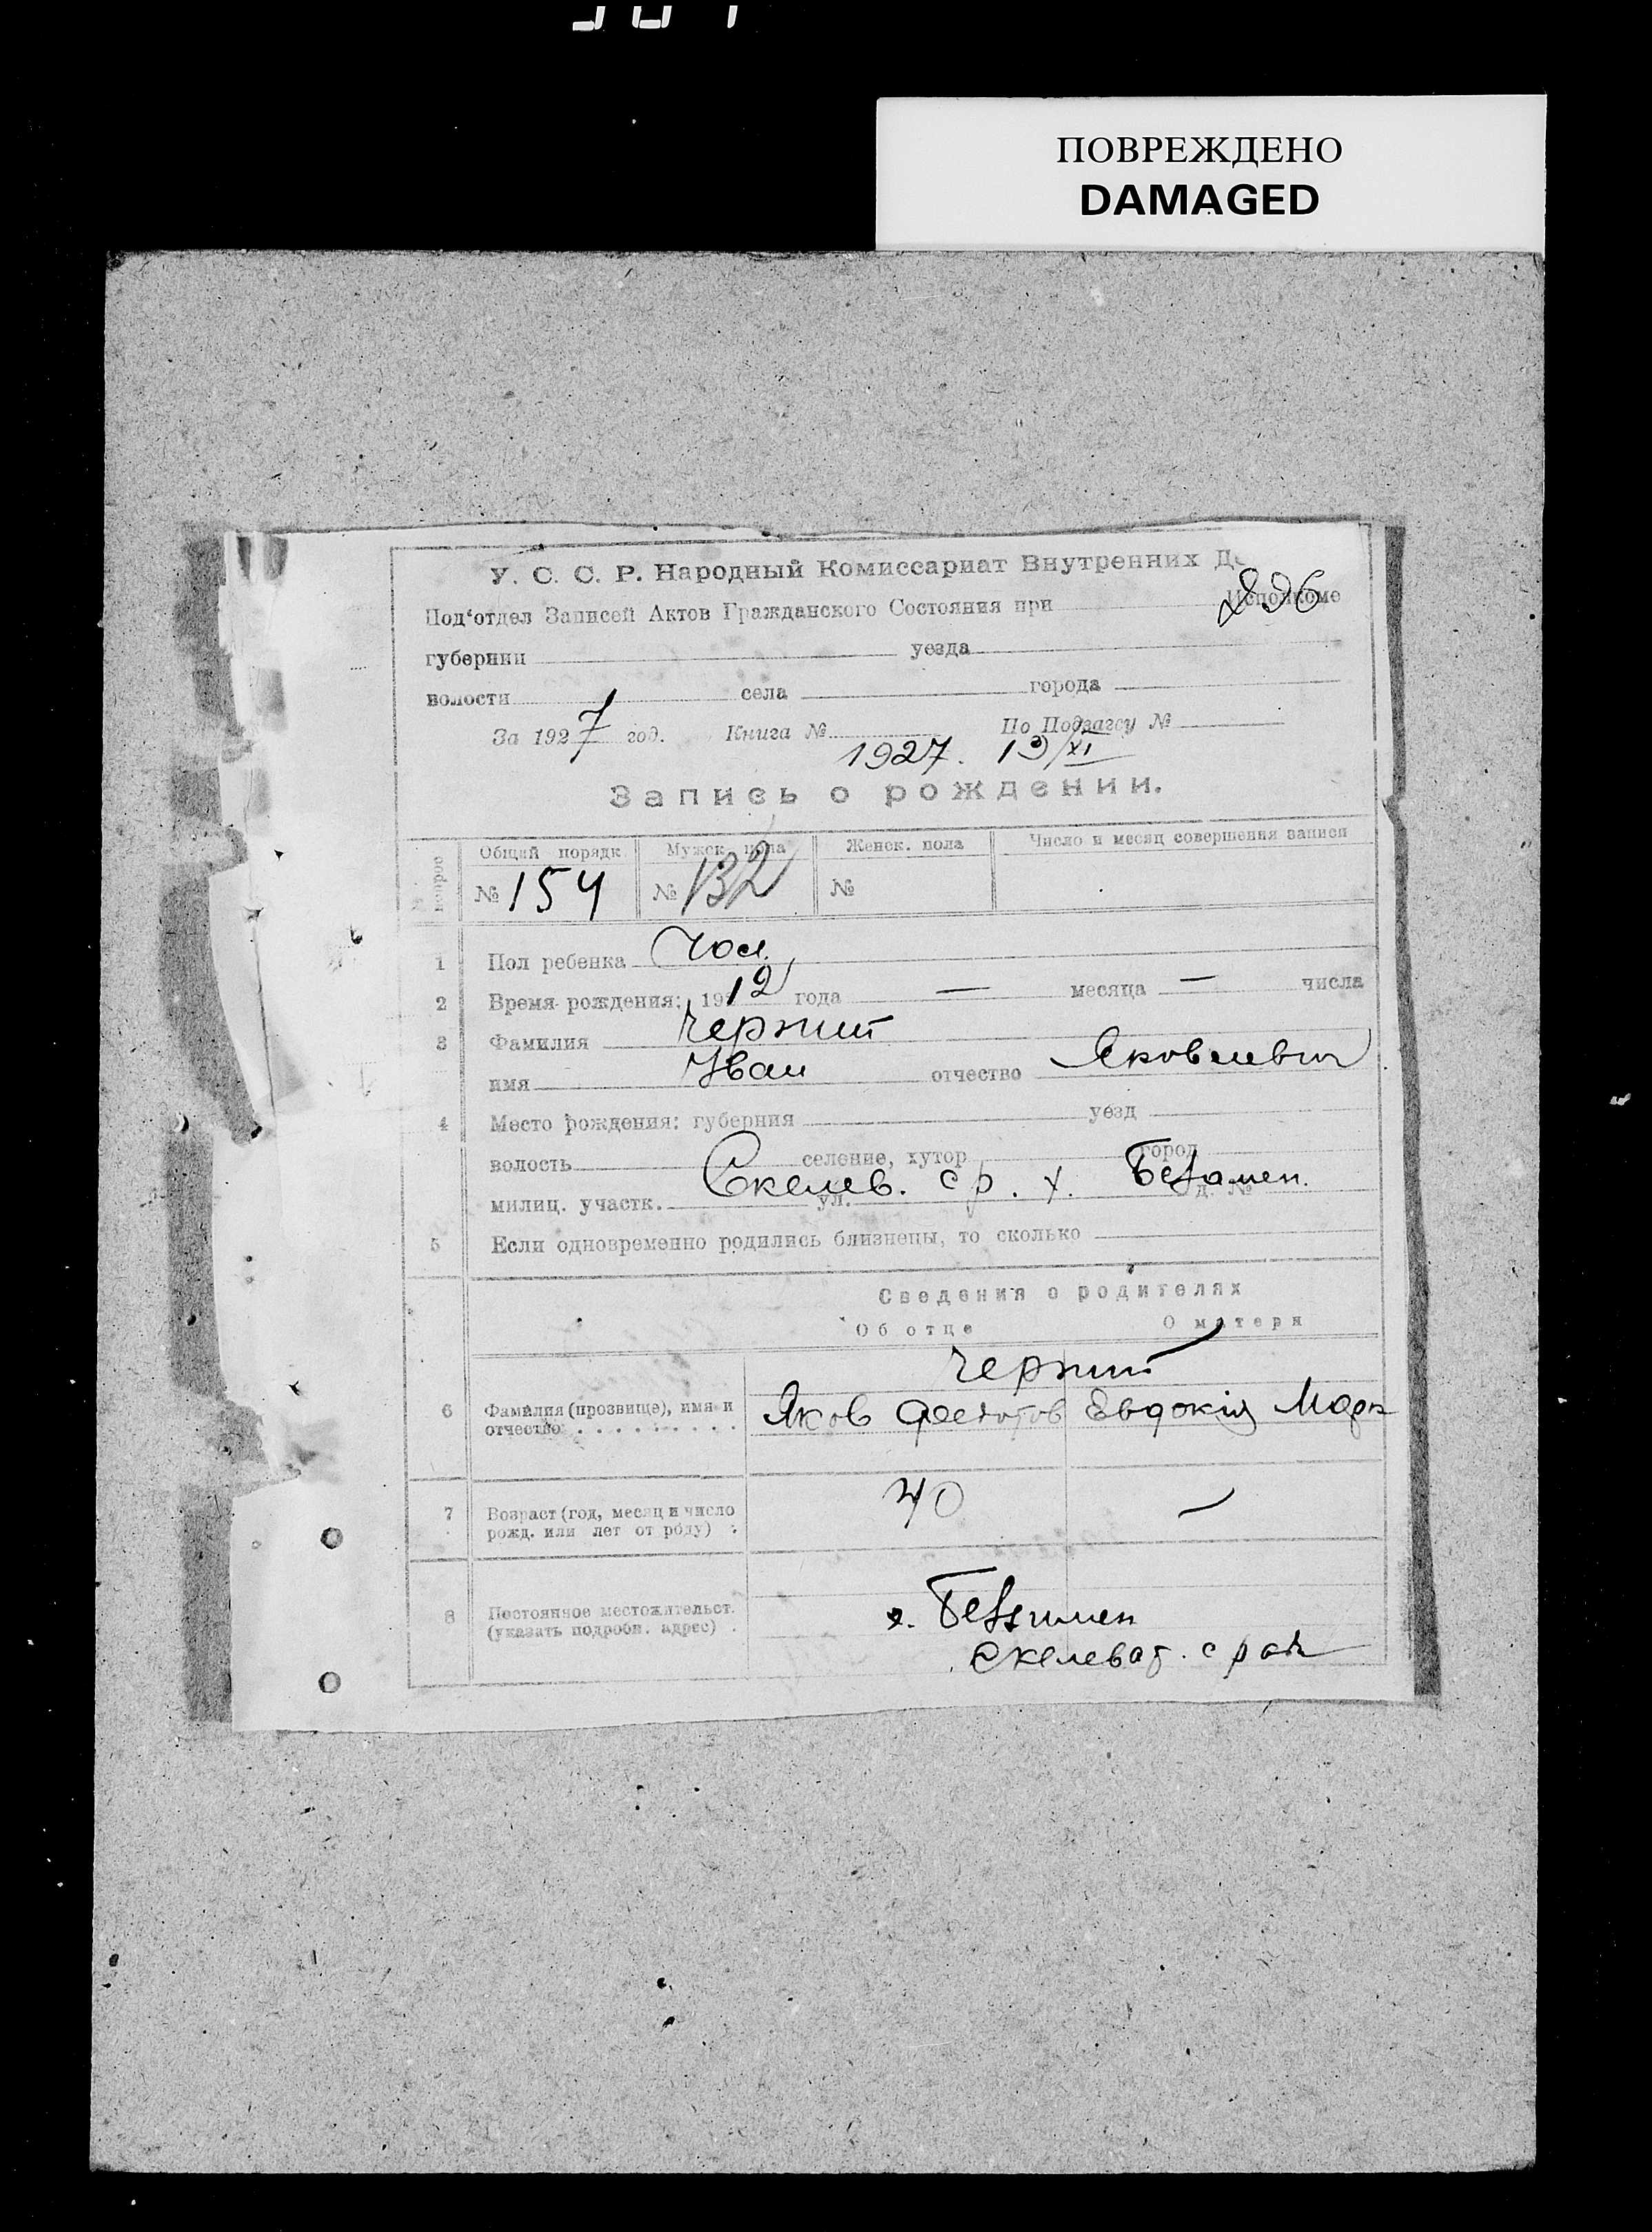 ПОВРЕЖДЕНО
DAMAGED
У. С. С. Р. Народный Комиссариат Внутренних Де
896
Под'отдел Записей Актов Гражданского Состояния при Исполкоме
губернии уезда
волости села города
За 1927 год. Книга № По Подзагсу №
1927. 13/XI
Запись о рождении.
вопрос Общий порядк Мужск. пола Женск. пола Число и месяц совершения записи
№ 154 № 132 №
1 Пол ребенка Чол.
2 Время рождения: 1912 года — месяца — числа
3 Фамилия Черний
имя Иван отчество Яковлевич
4 Место рождения: губерния уезд
волость селение, хутор город
Скелев. с р. х. Беззамен.
милиц. участк. ул. д. №
5 Если одновременно родились близнецы, то сколько
Сведения о родителях
Об отце О матери
Черний
6 Фамилия (прозвище), имя и Яков Федотов Евдокія Марк
отчество
7 Возраст (год, месяц и число 40 —
рожд. или лет от роду)
х. Беззимен
8 Постоянное местожительст.
(указать подробн. адрес)
Скелеват. с ради